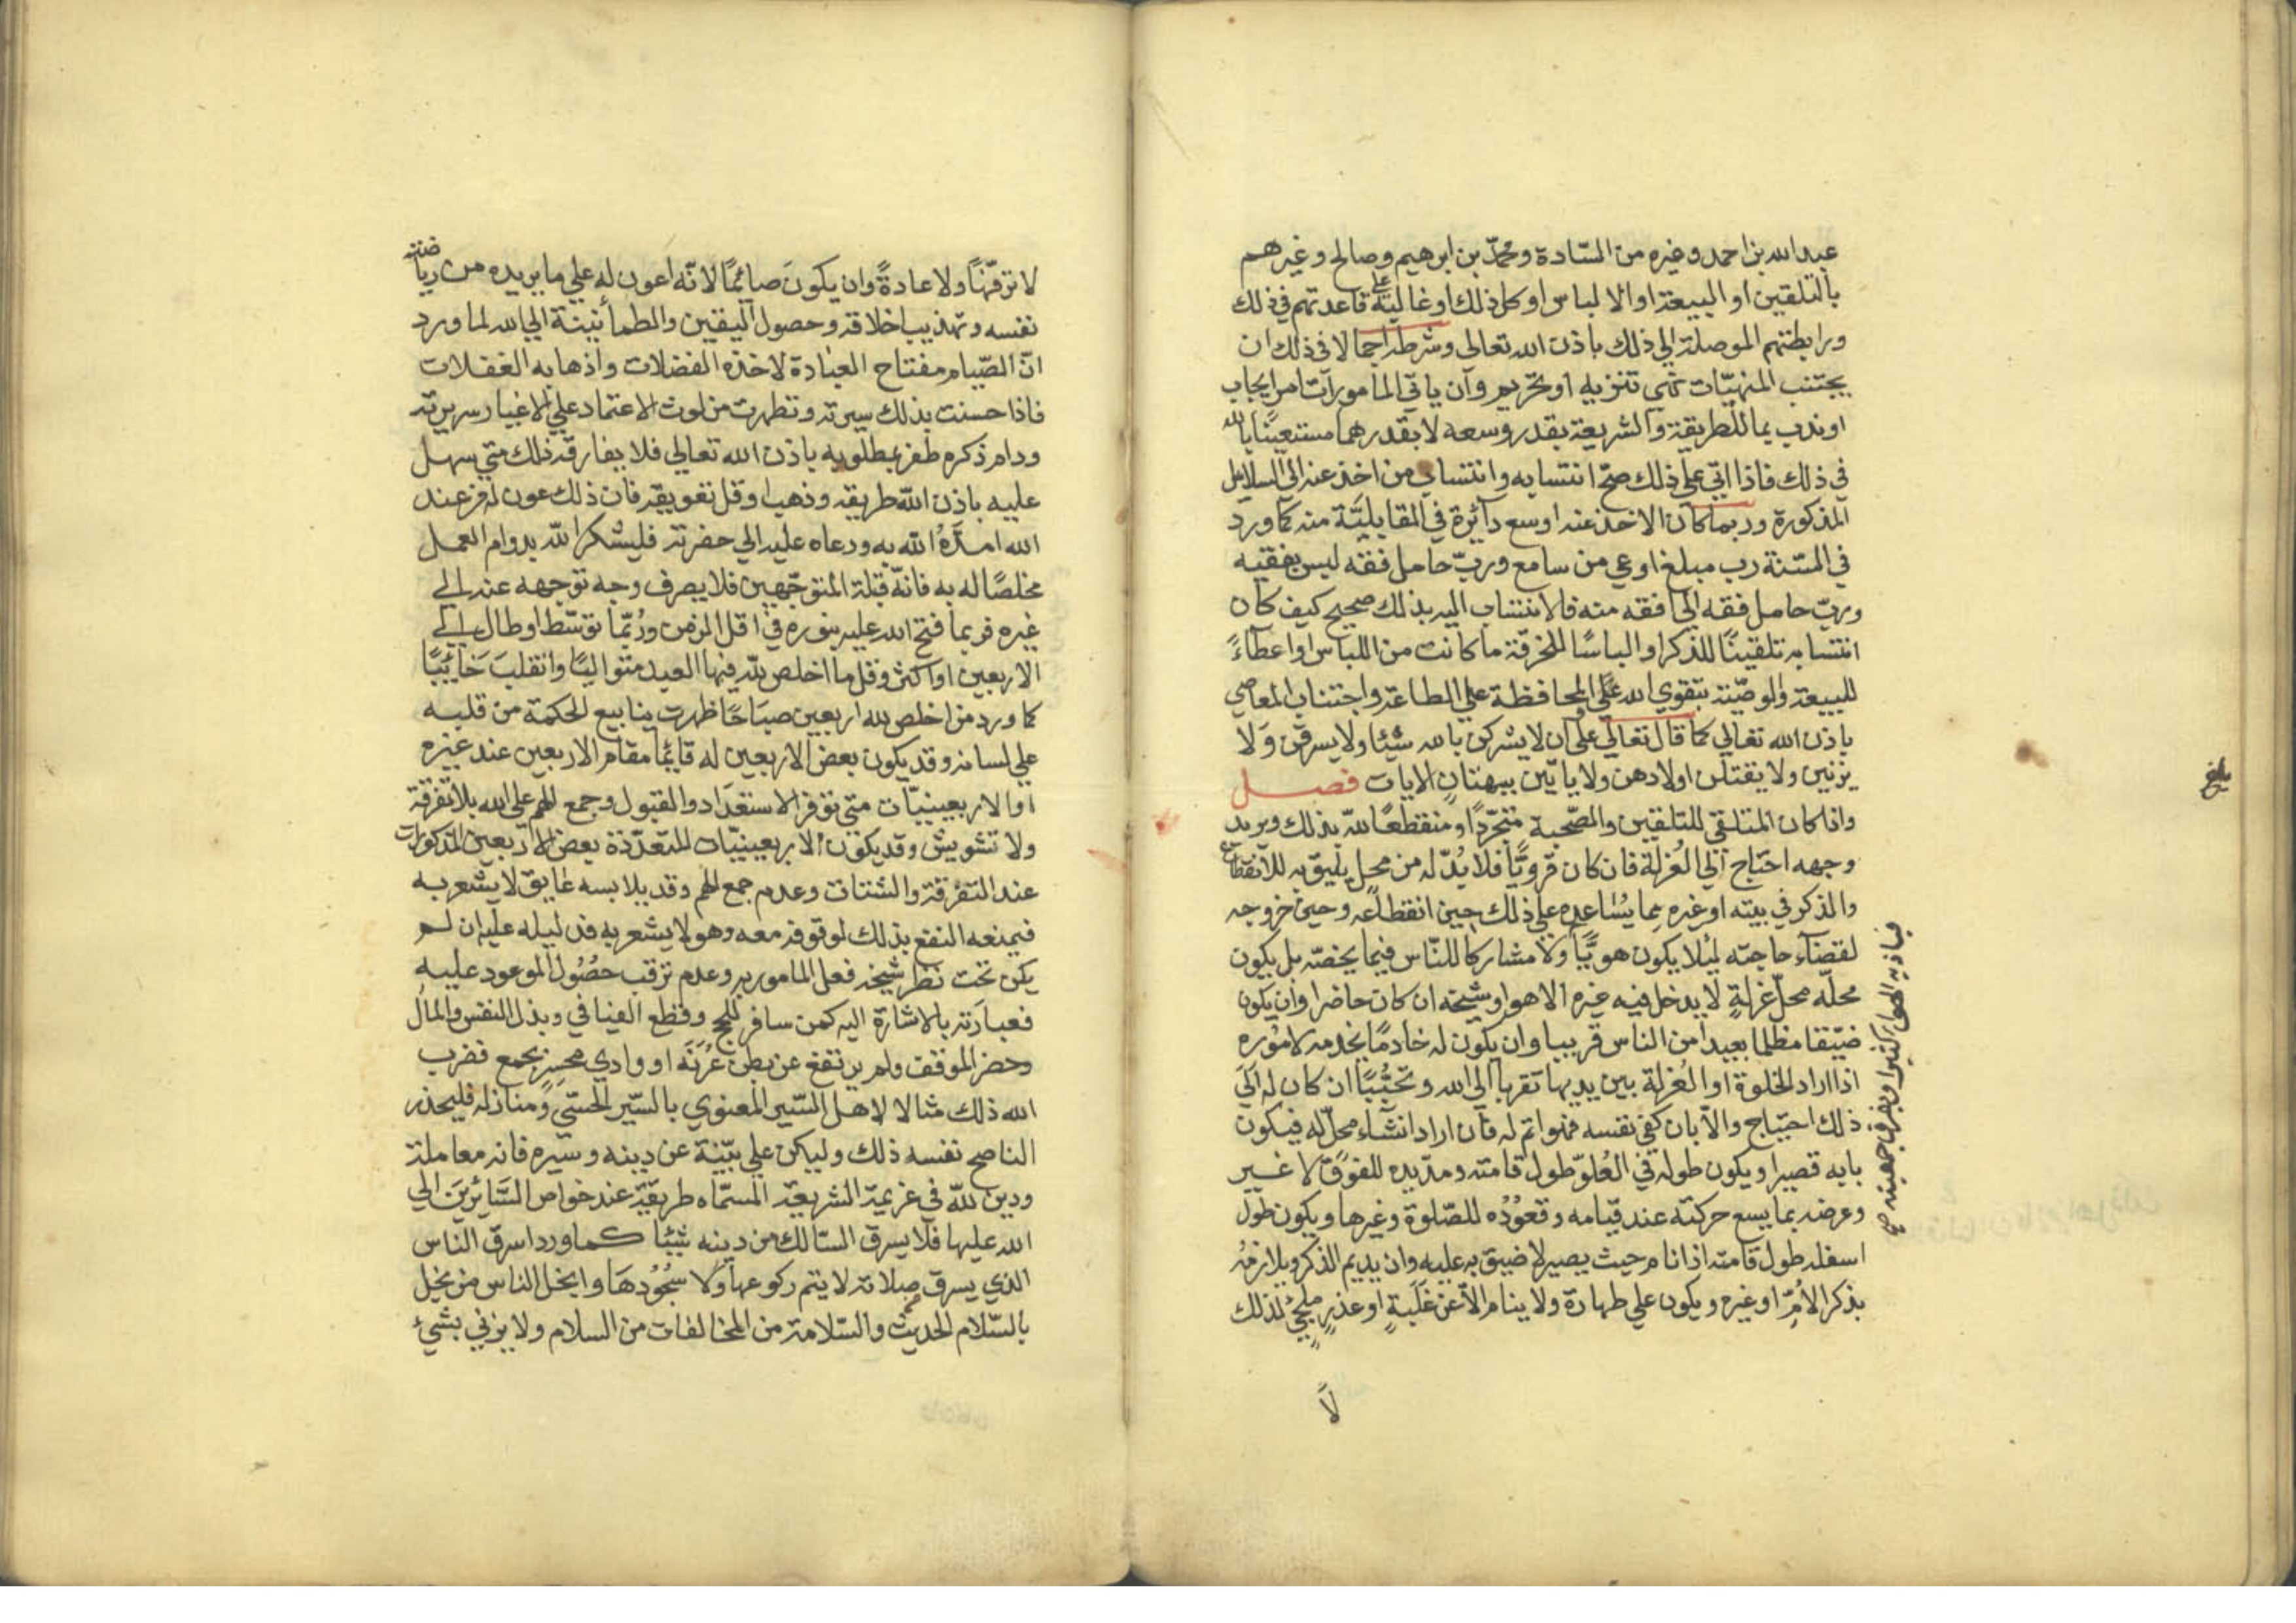 عبد الله بن احمد وغيره من السّادة ومحمّد بن ابرهيم وصالح وغيرهم
بالتلقين او البيعة او الالباس او كل ذلك او غالبه علي قاعدتهم في ذلك
ورابطتهم الموصلة الي ذلك باذن الله تعالي وشرطه اجمالا في ذلك ان
يجتنب المنهيّات نهي تنزيه او تحريم وان ياتي المامورات امر ايجاب
او ندب بما للطريقة والشريعة بقدر وسعه لا بقدرهما مستعينًا بالله
في ذلك فاذا اتي علي ذلك صحّ انتسابه وانتساب من اخذ عنه الي السلاسل
المذكورة وربما كان الاخذ عنه اوسع دائرة في القابليّة منه كما ورد
في السّنة رب مبلغ اوعي من سامع وربّ حامل فقه ليس بفقيه
وربّ حامل فقه الي افقه منه فالانتساب اليه بذلك صحيح كيف كان
انتسابه تلقينًا للذكر او الباسًا للخرقة ما كانت من اللباس او اعطاءً
للبيعة والوصّية بتقوي الله علي المحافظة علي الطاعة واجتناب المعاصي
باذن الله تعالي كما قال تعالي علي ان لا يشركن بالله شيئا ولا يسرقن وَلا
يزنين ولا يقتلن اولادهن ولا ياتين ببهتان الايات فصل
واذا كان المتلقي للتلقين والصّحبة متجرّدًا ومنقطعًا لله بذلك ويريد
وجهه احتاج الي العُزلة فان كان قرويًّا فلا بُدّ له من محل يليق به للانقطاع
والذكر في بيته او غيره بما يُساعده علي ذلك حين انقطاعه وحين خروجه
لقضاء حاجته ليُلا يكون هويًّا ولا مشاركا للنّاس فيما يخصّه بل يكون
محلّه محلّ عُزلةٍ لا يدخل فيه غيره الا هو او شيخه ان كان حاضرا وان يكون
ضيّقا مظلما بعيدا من الناس قريبا وان يكون له خادمًا يخدمه لامُوره
اذا اراد الخلوة او العُزلة بين يديها تقربا الي الله وتحبُّبًا ان كان له الَي
ذلك احتياج والّا بان كفي نفسه فهو اتم له فان اراد انشاء محلّ له فيكون
بابه قصيرا ويكون طوله في العُلوّ طول قامته ومدّ يده للفوق لا غير
وعرضه بما يسع حركته عند قيامه وقعوُدُه للصّلوة وغيرها ويكون طول
اسفله طول قامته اذا نام حيث يصير لا ضيق به عليه وان يديم الذكر ويلازمُه
بذكر الامُرّ او غيره ويكون علي طهارة ولا ينام الّا عن غَلَبةٍ او عذرٍ ملجئٍ لذلك
لَا
بلغ
لا ترفّهًا ولا عادةً وان يكونَ صائمًا لانّه اعون له علي ما يريده من رياضته
نفسه وتهذيب اخلاقه وحصول اليقين والطمأنينة الي الله لما ورد
انّ الصّيام مفتاح العبادة لاخذه الفضلات واذهابه الغفلات
فاذا حسنت بذلك سيرته وتطهرت من لوث الاعتماد علي الاغيار سريرته
ودام ذكره ظفر بمطلوبه باذن الله تعالي فلا يفارقه ذلك متي سهل
عليه باذن الله طريقه وذهب او قل تعويقه فان ذلك عون له من عند
الله امدَّهُ الله به ودعاه عليه الي حضرته فليشكر الله بدوام العمل
مخلصًا له به فانّه قبلة المتوجّهين فلا يصرف وجه توجهه عنه الي
غيره فربما فتح الله عليه بنوره في اقل الزمن ورُبّما توسّط او طال الي
الاربعين او اكثر وقل ما اخلص لله فيها العبد متواليًا وانقلبَ خَائبًا
كما ورد من اخلص لله اربعين صبَاحًا ظهرت ينابيع الحكمة من قلبه
علي لسانه وقد يكون بعض الاربعين له قايمًا مقام الاربعين عند غيره
او الاربعينيّات متي توفر الاستعدَاد والقبول وجمع الهم علي الله بلا تفرقة
ولا تشويش وقد يكون الاربعينيّات المتعدّدة بعض الاربعين المذكورات
عند التفرقة والشتات وعدم جمع الهم وقد يلابسه عايق لا يشعر به
فيمنعه النفع بذلك لوقوفه معه وهو لا يشعر به فدليله عليه ان لم
يكن تحت نظر شيخه فعل المامور به وعدم ترقب حصُول الموعود عليه
فعبادَته بالاشارة اليه كمن سافر للحج وقطع الفيافي وبذل النفس والمال
وحضر الموقف ولم يرتفع عن بطن عُرَنَه او وادي محسرٍ بجمع فضرب
الله ذلك مثالا لاهل السّير المعنوي بالسّير الحسّي وَمنازله فليحذر
الناصح نفسه ذلك وليكن علي بيّنة عن دينه وسيره فانه معاملة
ودين لله في عزيمة الشريعة المسمّاه طريقة عند خواص السَّائرينَ الي
الله عليها فلا يسرق السّالك من دينه شيئا كما ورد اسرق الناس
الذي يسرق صلاته لا يتم ركوعها وَلا سجُوُدهَا وابخل الناس من يخل
بالسّلام الحديث والسّلامة من المخالفات من السلام ولا يزني بشيء